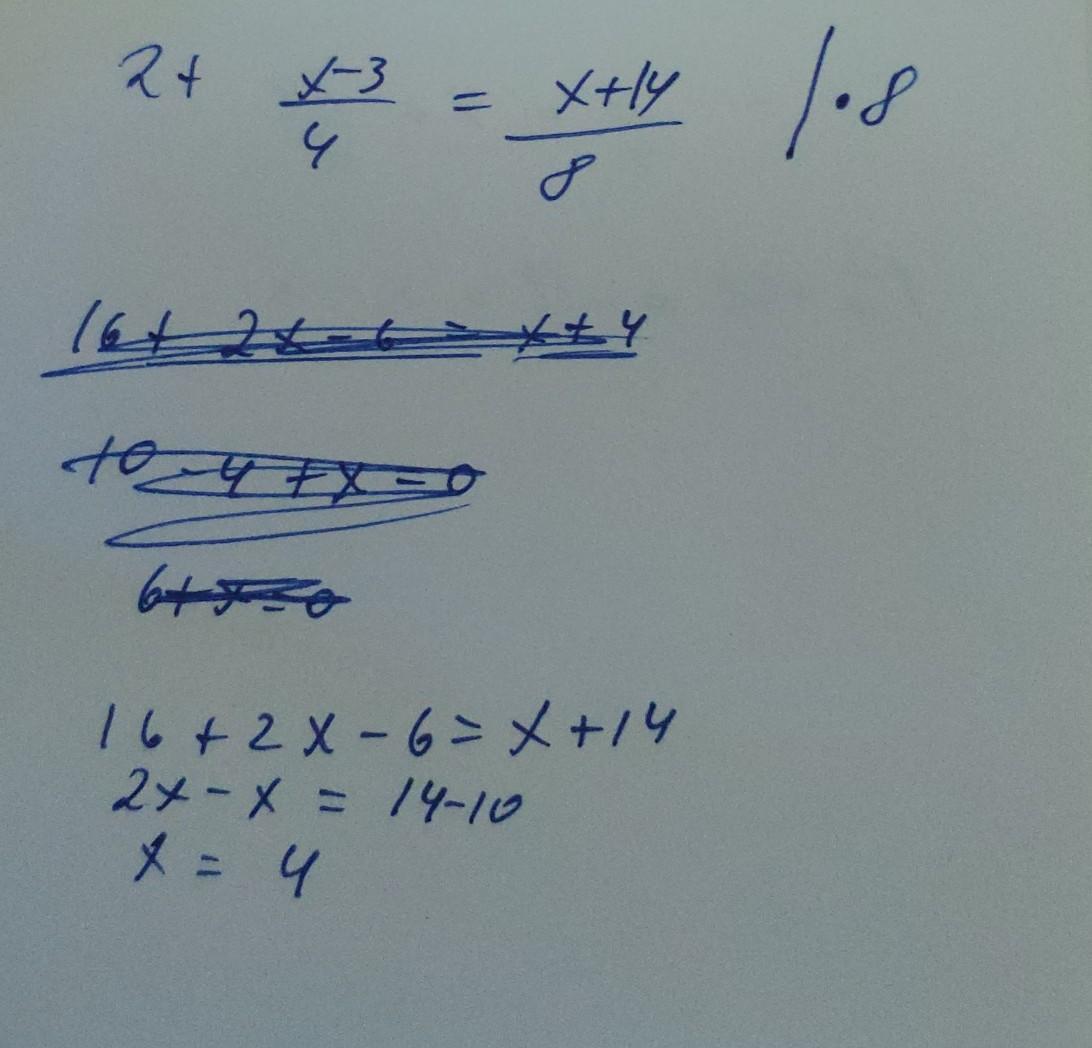 2+ x-3/4 = x+14/8 /·8
16+ 2x-6 = x+4
10-4+x=0
6+x=0
16+2x-6=x+14
2x-x = 14-10
x = 4